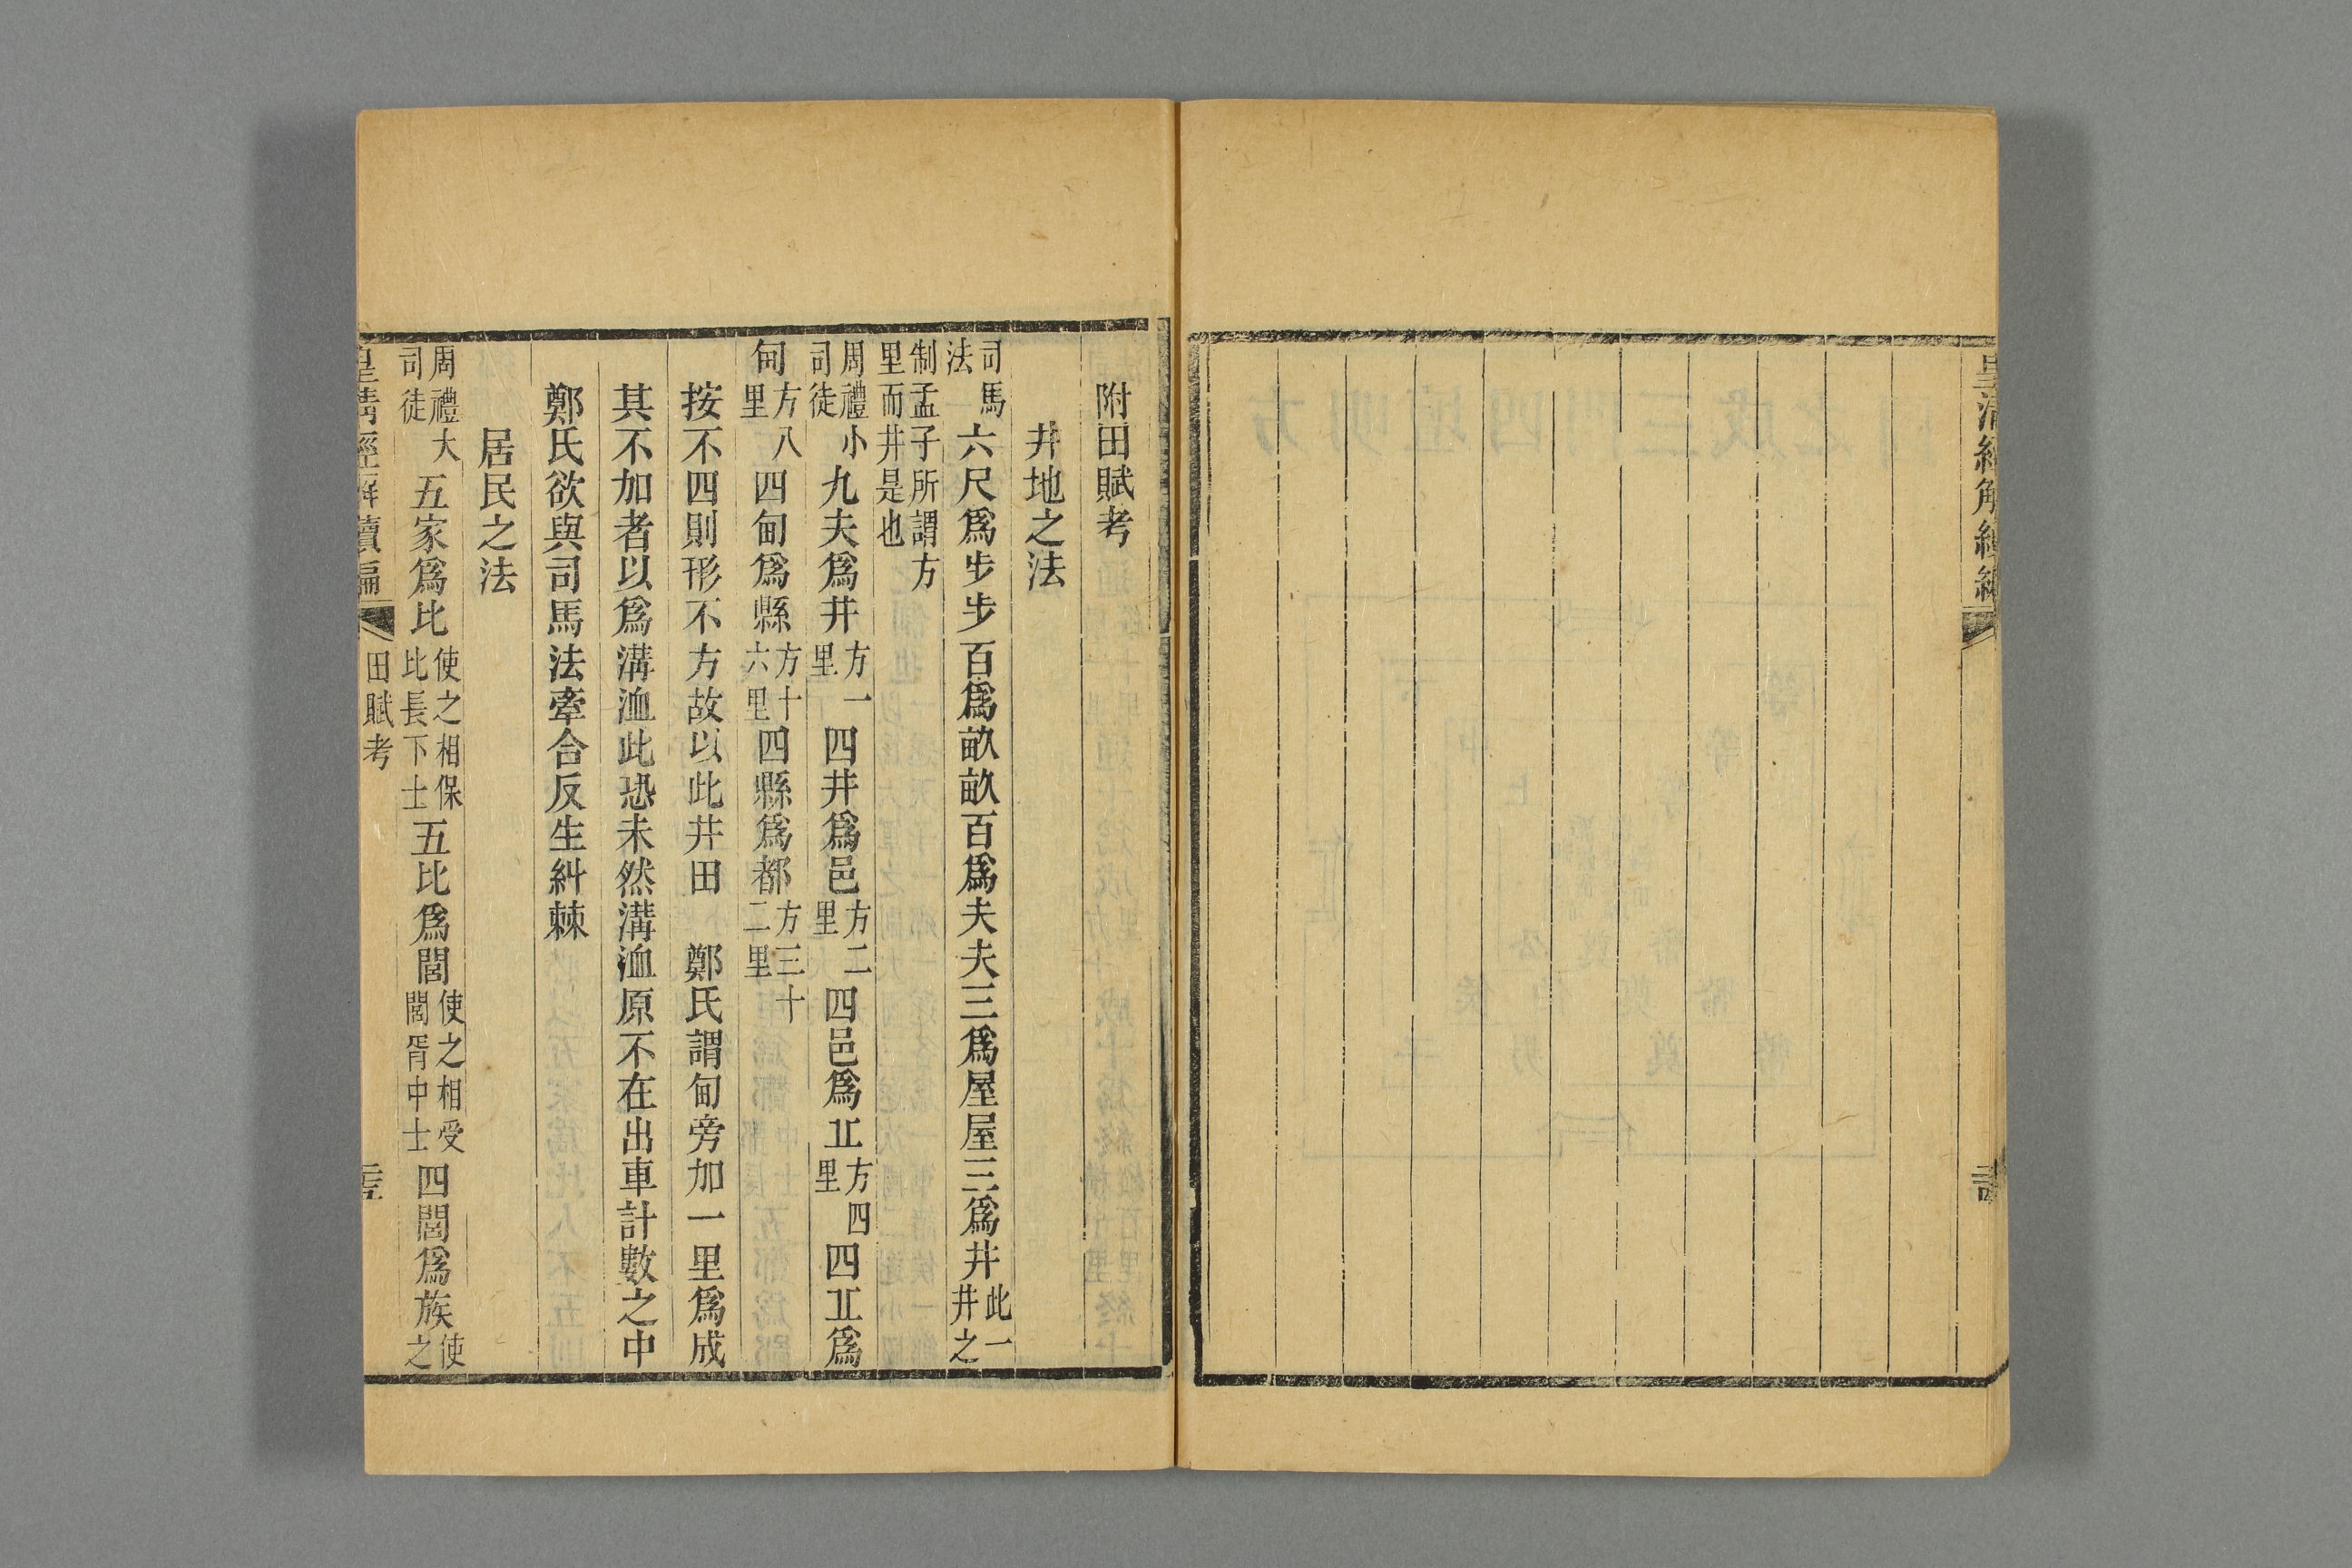 皇清經解續編
附田賦考
井地之法
司馬法六尺爲步步百爲畝畝百爲夫夫三爲屋屋三爲井此一井之
制孟子所謂方里而井是也
周禮小司徒九夫爲井方一里四井爲邑方二里四邑爲㐀方四里四㐀爲
甸方八里四甸爲縣方十六里四縣爲都方三十二里
按不四則形不方故以此井田　鄭氏謂甸旁加一里爲成
其不加者以爲溝洫此恐未然溝洫原不在出車計數之中
鄭氏欲與司馬法牽合反生糾棘
居民之法
周禮大司徒五家爲比使之相保比長下士五比爲閭使之相受閭胥中士四閭爲族使之
皇清經解續編　田賦考